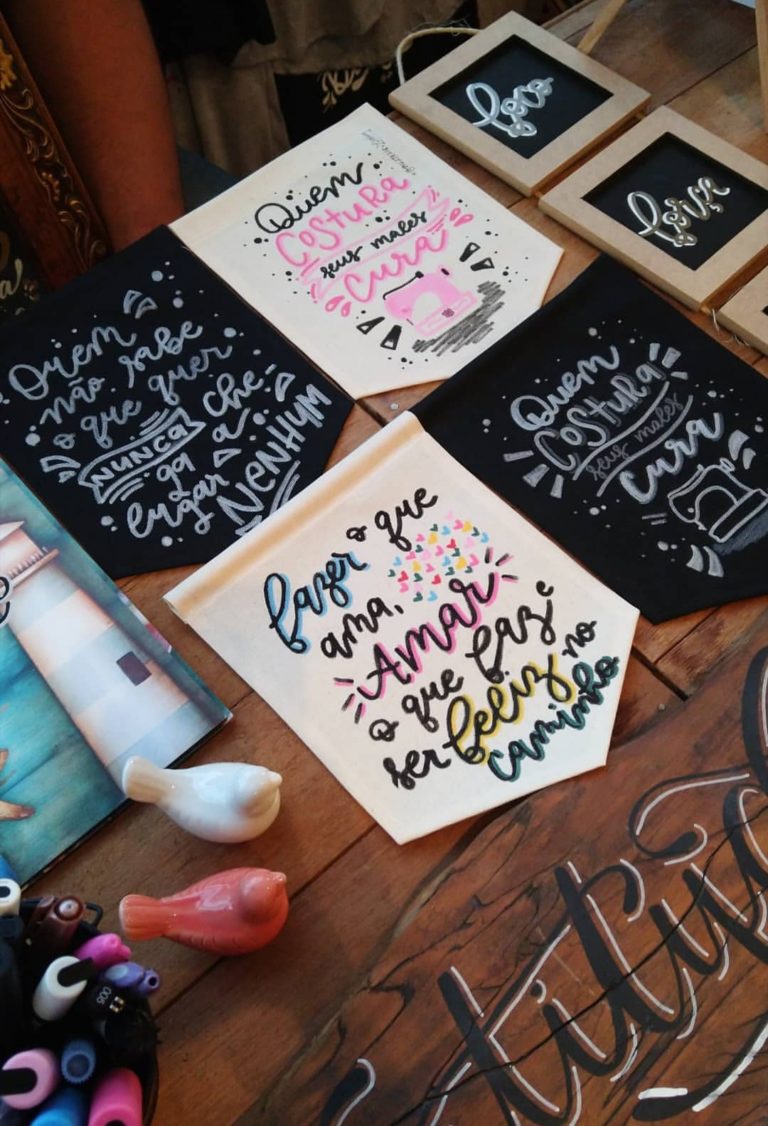 Quem
Costura
seus males
Cura
Quem
não sabe
o que quer
NUNCA che-
ga a
lugar NENHUM
Quem
Costura
seus males
Cura
fazer o que
ama,
Amar
o que faz e
ser feliz no
caminho
005